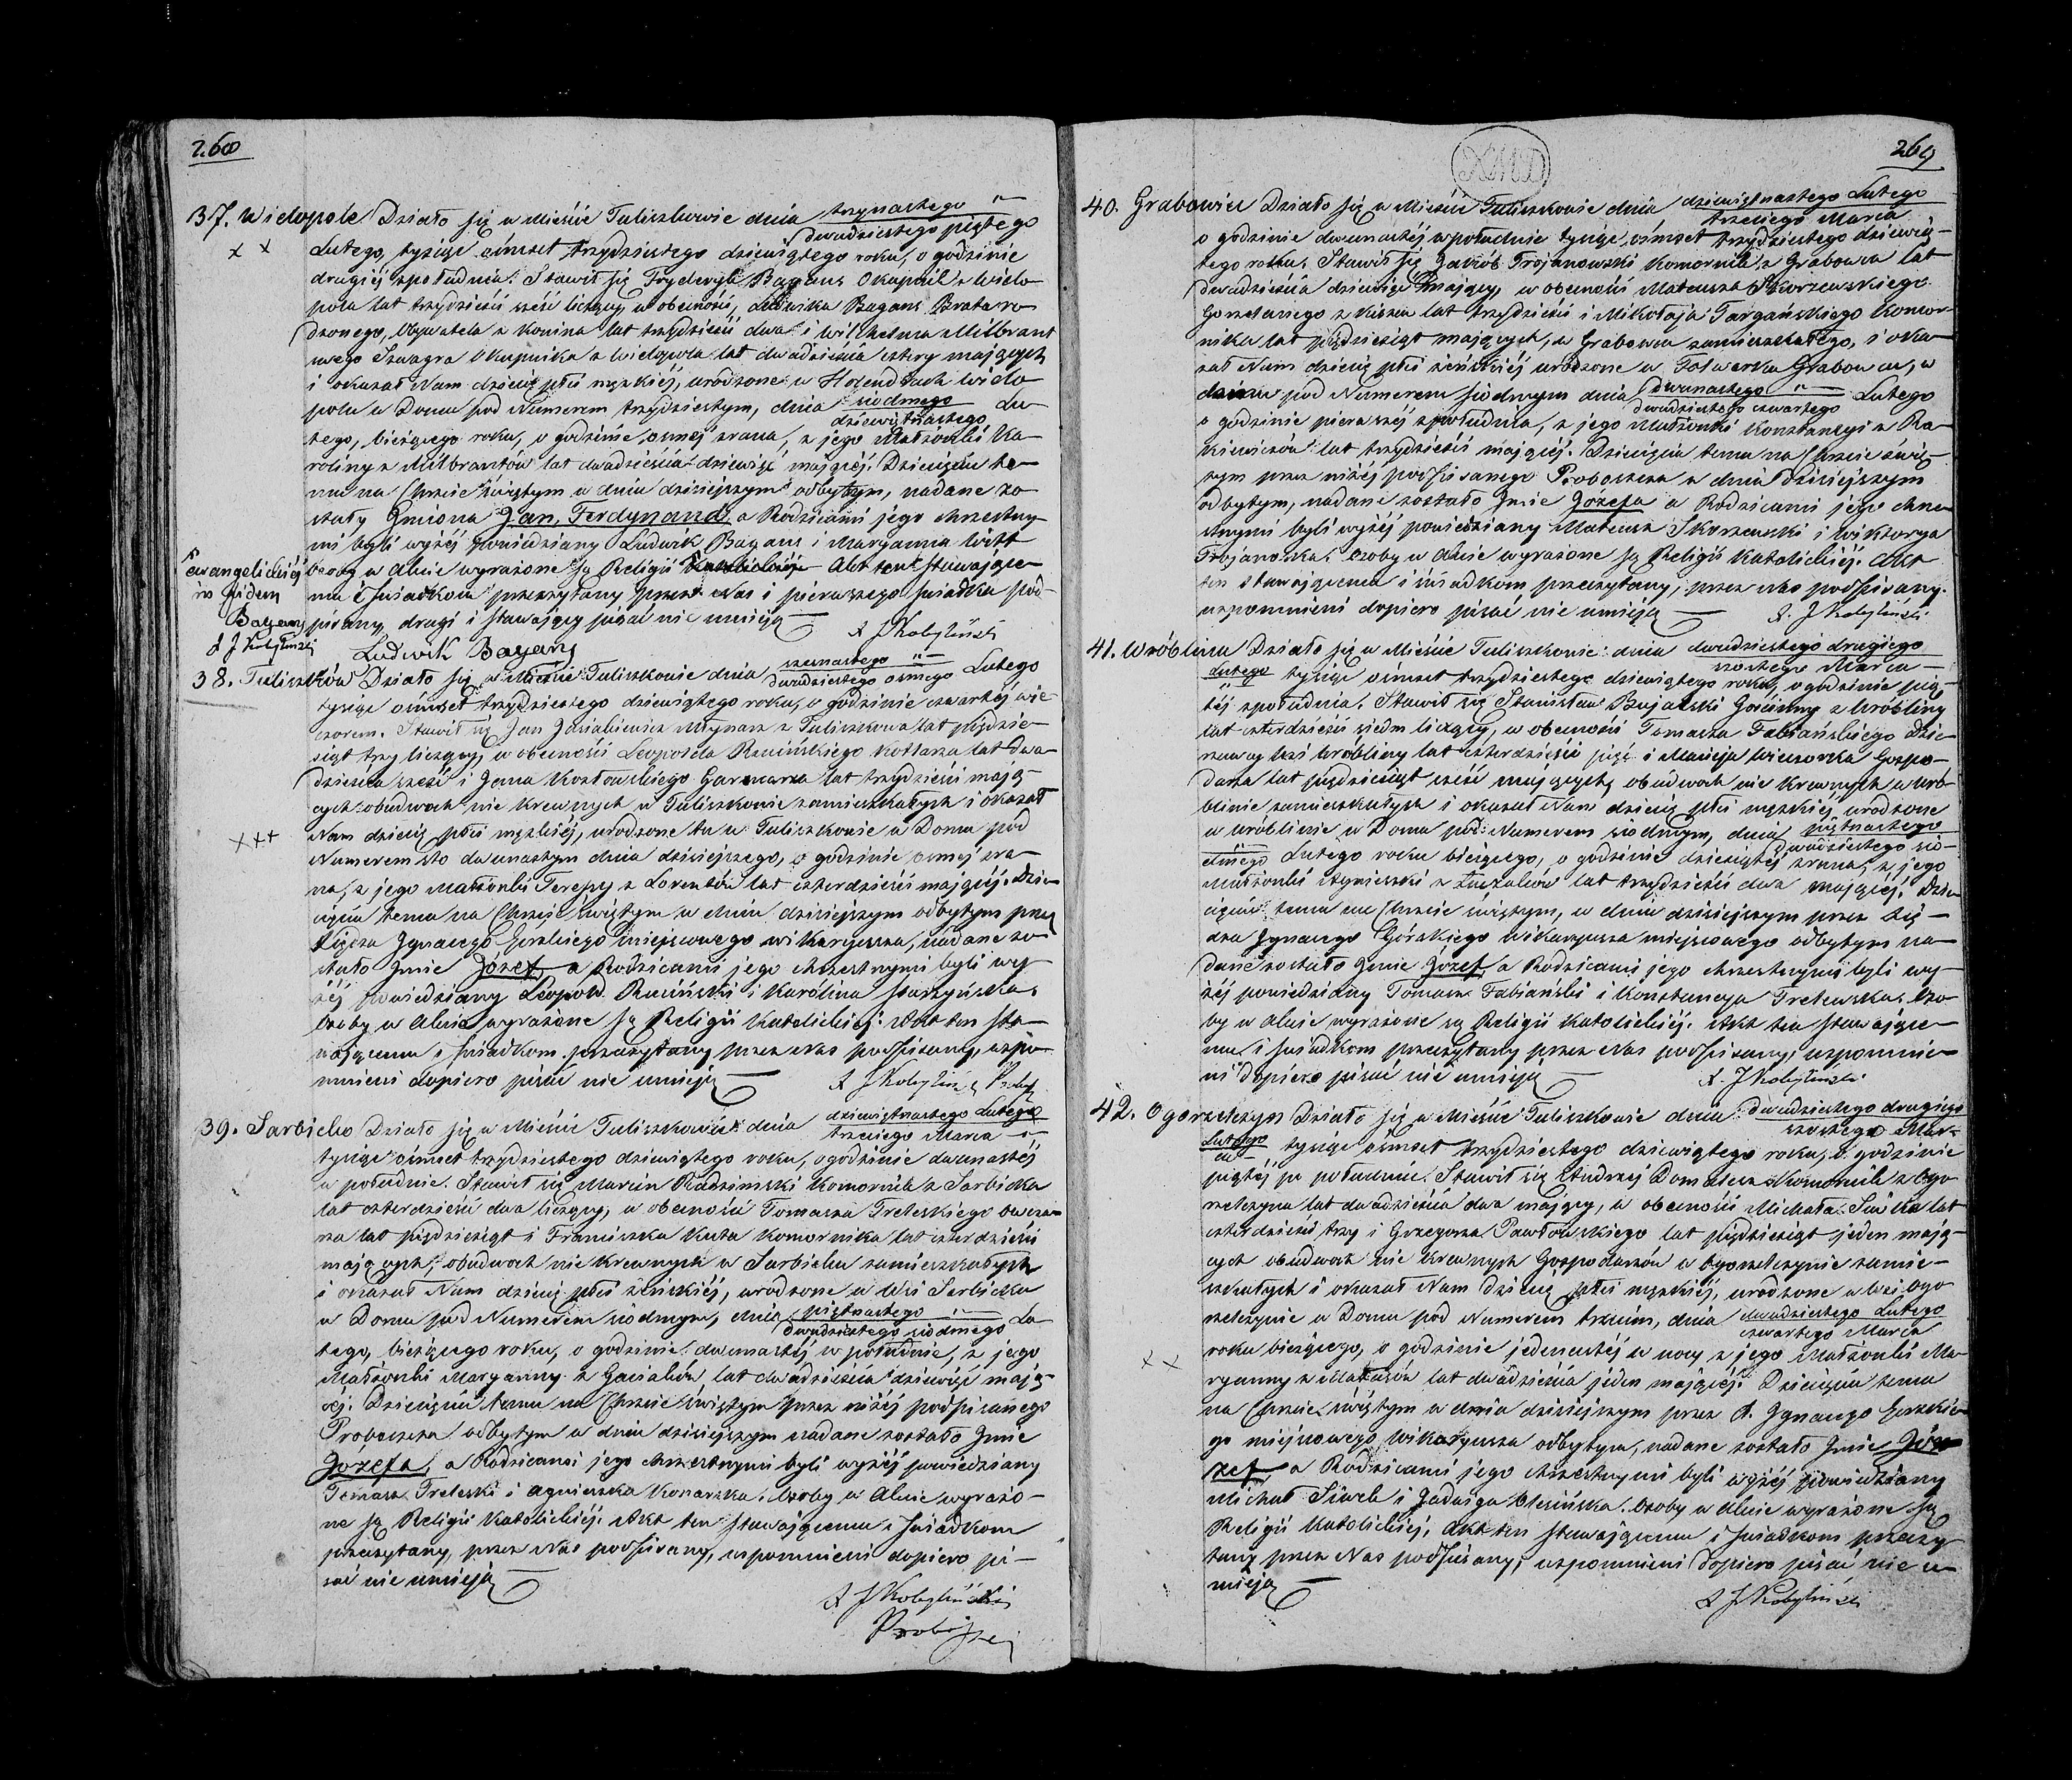 268
37. Widopole Działo się w Mieście Tuliszkowie dnia trzynastego
dwudziestego piątego
x x
Lutego, tysiąc ośmset trzydziestego dziewiątego roku, o godzinie
drugiéj z południa. Stawił się Fryderyk Bagans Okupnik z Wido-
pola lat trzydzieści sześć liczący, w obecności, Ludwika Bagans Brata ro-
dzonego, Obywatela z Konina lat trzydzieści dwa i Wilhelma Milbrant
swego Szwagra Okupnika z Widopola lat dwadzieścia cztery mających
i okazał Nam dziecię płci męzkiéj, urodzone w Holendrach Wido-
polu w Domu pod Numerem trzydziestym, dnia siódmego Lu-
dziewiętnastego
tego, bieżącego roku, o godzinie ósméj zrana, z jego Małżonki Ka-
roliny z Milbrantów lat dwadzieścia dziewięć mającéj. Dziecięciu te-
mu na Chrzcie świętym w dniu dzisiejszym odbytym, nadane zo-
stały Imiona Jan, Ferdynand, a Rodzicami jego chrzestny-
mi byli wyżéj powiedziany Ludwik Bagans i Maryanna Witt
Osoby w Akcie wyrażone są Religii Katolickiéj Akt ten stawające-
ewangelickiéj
mu i świadkom przeczytany przez Nas i pierwszego świadka pod-
Bagans
pisany, drugi i stawający pisać nie umieją
X J Kobyliński
X J Kobyliński
Ludwik Bagans
38. Tuliszków Działo się w Mieście Tuliszkowie dnia szesnastego Lutego
dwudziestego ósmego
tysiąc ośmset trzydziestego dziewiątego roku, o godzinie czwartéj wie-
czorem. Stawił się Jan Młynarz z Tuliszkowa lat pięćdzie-
siąt trzy liczący, w obecności Leopolda Rucińskiego Kotlarza lat dwa-
dzieścia sześć i Jana Kozłowskiego Garncarza lat trzydzieści mają-
cych obudwoch nie krewnych w Tuliszkowie zamieszkałych i okazał
Nam dziecię płci męzkiéj, urodzone tu w Tuliszkowie w Domu pod
xxx
Numerem sto dwunastym dnia dzisiejszego, o godzinie ósméj zra-
na, z jego Małżonki Teresy z Lorentów lat czterdzieści mającéj. Dzie-
cięciu temu na Chrzcie świętym w dniu dzisiejszym odbytym przez
Xiędza Ignacego Gorskiego miejscowego wikaryusza, nadane zo-
stało Imie Józef, a Rodzicami jego chrzestnymi byli wy-
żéj powiedziany Leopold Ruciński i Karólina Starzyńska.
Osoby w Akcie wyrażone są Religii Katolickiéj. Akt ten sta-
wającemu i świadkom przeczytany przez Nas podpisany, wspo-
mnieni dopiero pisać nie umieją
X J Kobyliński Prob
39. Sarbicko Działo się w Mieście Tuliszkowie dnia dziewiętnastego Lutego
trzeciego Marca
tysiąc ośmset trzydziestego dziewiątego roku, o godzinie dwunastéj
w południe. Stawił się Marcin Radzimski Komornik z Sarbicka
lat czterdzieści dwa liczący, w obecności Tomasza Treleskiego Owcza-
rza lat pięćdziesiąt i Franciszka Kuta Komornika lat czterdzieści
mających, obudwoch nie krewnych w Sarbicku zamieszkałych
i okazał Nam dziecię płci żeńskiéj, urodzone w Wsi Sarbicku
w Domu pod Numerem siódmym, dnia piętnastego Lu-
dwudziestego siódmego
tego, bieżącego roku, o godzinie dwunastéj w południe, z jego
Małżonki Maryanny z Gasiałów lat dwadzieścia dziewięć mają-
céj. Dziecięciu temu na Chrzcie świętym przez niżéj podpisanego
Proboszcza odbytym w dniu dzisiejszym nadane zostało Imie
Józefa, a Rodzicami jego chrzestnymi byli wyżéj powiedziany
Tomasz Treleski i Agnieszka Konarska. Osoby w Akcie wyrażo-
ne są Religii Katolickiéj. Akt ten stawającemu i świadkom
przeczytany, przez Nas podpisany, wspomnieni dopiero pi-
sać nie umieją
X J Kobyliński
Proboszcz
269
40. Grabowiec Działo się w Mieście Tuliszkowie dnia dziewiętnastego Lutego
trzeciego Marca
o godzinie dwunastéj w południe tysiąc ośmset trzydziestego dziewią-
tego roku, Stawił się Jakób Trojanowski Komornik z Grabowca lat
dwadzieścia dziewięć mający, w obecności Mateusza Skorzewskiego
Gorzelanego z Kiszew lat trzydzieści i Mikołaja Targańskiego Komor-
nika lat pięćdziesiąt mających, w Grabowcu zamieszkałego, i oka-
zał Nam dziecię płci żeńskiéj urodzone w Folwarku Grabowcu, w
domu pod Numerem siódmym dnia dwunastego Lutego
dwudziestego czwartego
o godzinie pierwszéj z południa, z jego Małżonki Konstancyi z Ra-
kiewiczów lat trzydzieści mającéj. Dziecięciu temu na Chrzcie świę-
tym przez niżéj podpisanego Proboszcza w dniu dzisiejszym
odbytym, nadane zostało Imie Józefa a Rodzicami jego chrze-
stnymi byli wyżéj powiedziany Mateusz Skorzewski i Wiktorya
Trojanowska. Osoby w Akcie wyrażone są Religii Katolickiéj. Akt
ten stawającemu i świadkom przeczytany, przez Nas podpisany,
wspomnieni dopiero pisać nie umieją
X. J Kobyliński
41. Wróblina Działo się w Mieście Tuliszkowie dnia dwudziestego drugiego
szóstego Marca
Lutego tysiąc ośmset trzydziestego dziewiątego roku, o godzinie pią-
téj z południa. Stawił się Stanisław Bujalski Gościnny z Wróbliny
lat czterdzieści siedm liczący, w obecności Tomasza Fabiańskiego Dzier-
żawcy Wsi Wróbliny lat czterdzieści pięć i Macieja Wieczorka Gospo-
darza lat pięćdziesiąt sześć mających, obudwoch nie krewnych w Wró-
blinie zamieszkałych i okazał Nam dziecię płci męzkiéj urodzone
w Wróblinie w Domu pod Numerem siódmym, dnia piętnastego
dwudziestego sió-
dmego Lutego roku bieżącego, o godzinie dziesiątéj zrana, z jego
Małżonki Agnieszki z lat trzydzieści dwa mającéj. Dzie-
cięciu temu na Chrzcie świętym, w dniu dzisiejszym przez Xię-
dza Ignacego Górskiego Wikaryusza miejscowego odbytym na-
dane zostało Imie Józef, a Rodzicami jego chrzestnymi byli wy-
żéj powiedziany Tomasz Fabiański i Konstancya Trelewska. Oso-
by w Akcie wyrażone są Religii Katolickiéj. Akt ten stawające-
mu i świadkom przeczytany przez Nas podpisany, wspomnie-
ni dopiero pisać nie umieją
X. J Kobyliński
42. Ogorzelczyn Działo się w Mieście Tuliszkowie dnia dwudziestego drugiego
szóstego Mar-
Lutego
ca tysiąc ośmset trzydziestego dziewiątego roku, o godzinie
piątéj po południu. Stawił się Andrzéj Domalesz Komornik z Ogo-
rzelczyna lat dwadzieścia dwa mający, w obecności Michała Siwka lat
czterdzieści trzy i Grzegorza Pawłowskiego lat pięćdziesiąt jeden mają-
cych obudwoch nie krewnych Gospodarzów w Ogorzelczynie zamie-
szkałych i okazał Nam dziecię płci męzkiéj, urodzone w Wsi Ogo-
rzelczynie w Domu pod Numerem trzecim, dnia dwudziestego Lutego
czwartego Marca
x x
roku bieżącego, o godzinie jedenastéj w nocy z jego Małżonki Ma-
ryanny z Matusów lat dwadzieścia jeden mającéj. Dziecięciu temu
na Chrzcie świętym w dniu dzisiejszym przez X. Ignacego Gorskie-
go miejscowego Wikaryusza odbytym, nadane zostało Imie Jó-
zef, a Rodzicami jego chrzestnymi byli wyżéj powiedziany
Michał Siwek i Jadwiga Olesińska. Osoby w Akcie wyrażone są
Religii Katolickiéj, Akt ten stawającemu i świadkom przeczy-
tany przez Nas podpisany, wspomnieni dopiero pisać nie u-
mieją
X J Kobyliński